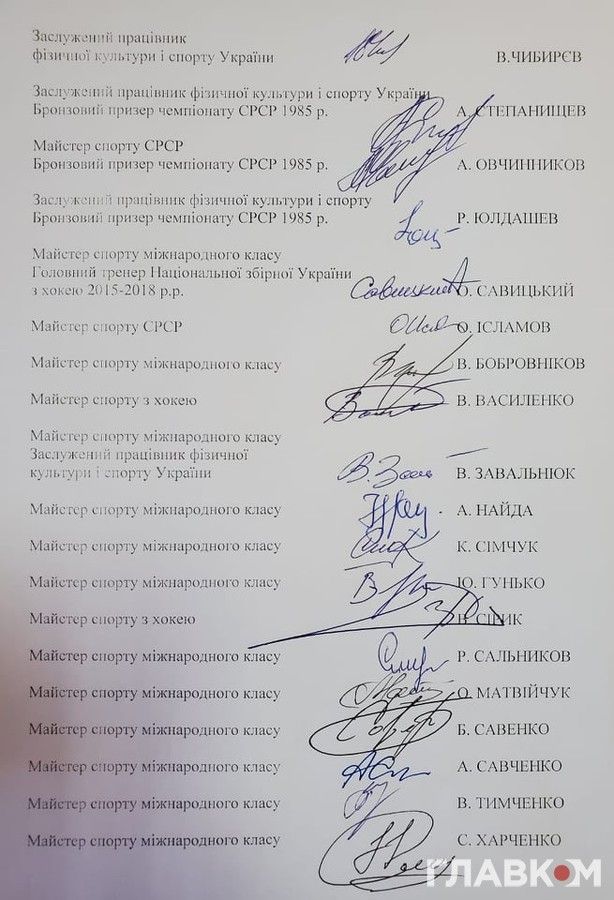 Заслужений працівник
фізичної культури і спорту України В.ЧИБИРЄВ
Заслужений працівник фізичної культури і спорту України
Бронзовий призер чемпіонату СРСР 1985 р. А. СТЕПАНИЩЕВ
Майстер спорту СРСР
Бронзовий призер чемпіонату СРСР 1985 р. А. ОВЧИННИКОВ
Заслужений працівник фізичної культури і спорту
Бронзовий призер чемпіонату СРСР 1985 р. Р. ЮЛДАШЕВ
Майстер спорту міжнародного класу
Головний тренер Національної збірної України
з хокею 2015-2018 р.р. Савицкий О. САВИЦЬКИЙ
Майстер спорту СРСР О. ІСЛАМОВ
Майстер спорту міжнародного класу В. БОБРОВНІКОВ
Майстер спорту з хокею В. ВАСИЛЕНКО
Майстер спорту міжнародного класу
Заслужений працівник фізичної
культури і спорту України В. ЗАВАЛЬНЮК
Майстер спорту міжнародного класу А. НАЙДА
Майстер спорту міжнародного класу К. СІМЧУК
Майстер спорту міжнародного класу Ю. ГУНЬКО
Майстер спорту з хокею
Майстер спорту міжнародного класу Р. САЛЬНИКОВ
Майстер спорту міжнародного класу О. МАТВІЙЧУК
Майстер спорту міжнародного класу Б. САВЕНКО
Майстер спорту міжнародного класу А. САВЧЕНКО
Майстер спорту міжнародного класу В. ТИМЧЕНКО
Майстер спорту міжнародного класу С. ХАРЧЕНКО
ГЛАВКОМ